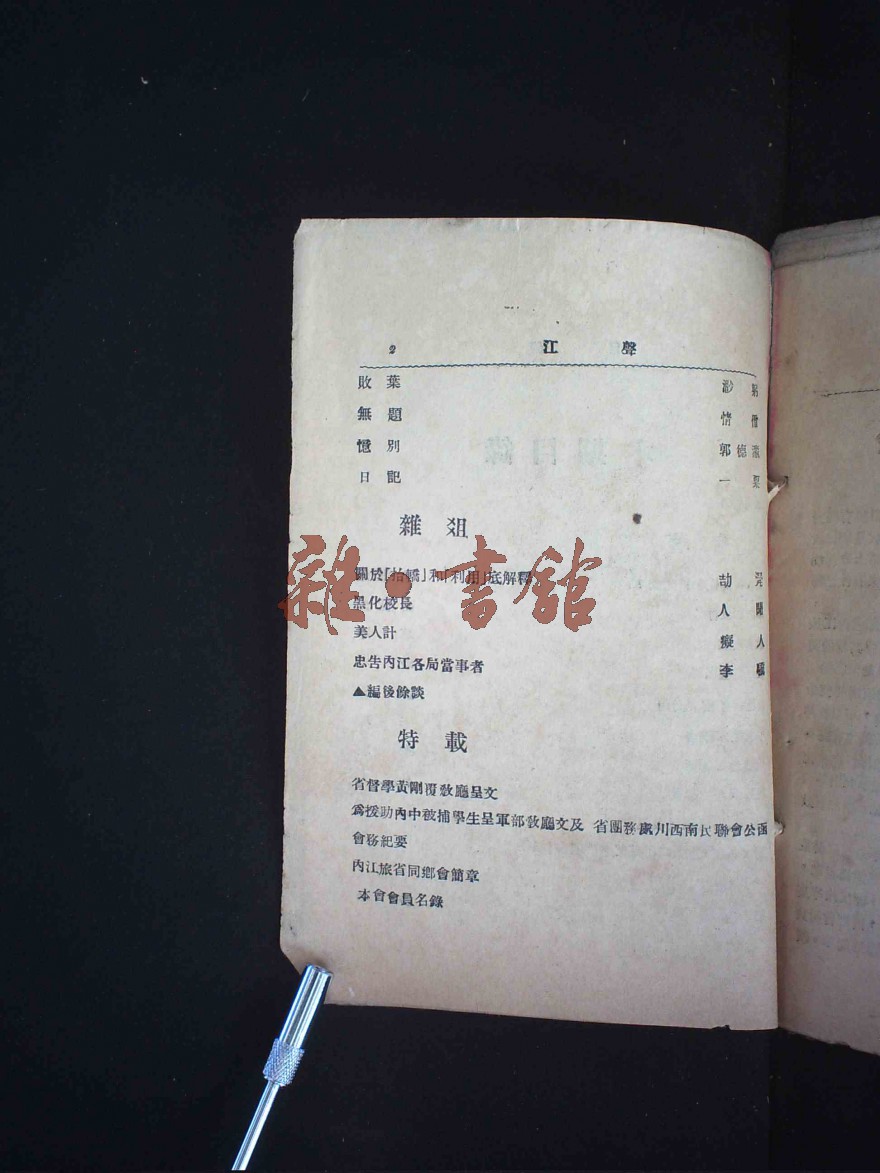 2 江聲
敗葉 渺
無題 情僧
憶別 郭德
日記 一
雜俎
關於「抬轎」和「利用」底解釋 劫
黑化校長 人
美人計 癡人
忠告內江各局當事者 李
▲編後餘談
特載
省督學黃剛覆敎廳呈文
爲援助內中被捕學生呈軍部敎廳文及 省團務處川西南民聯會公函
會務紀要
內江旅省同鄉會簡章
本會會員名錄
雜·書館